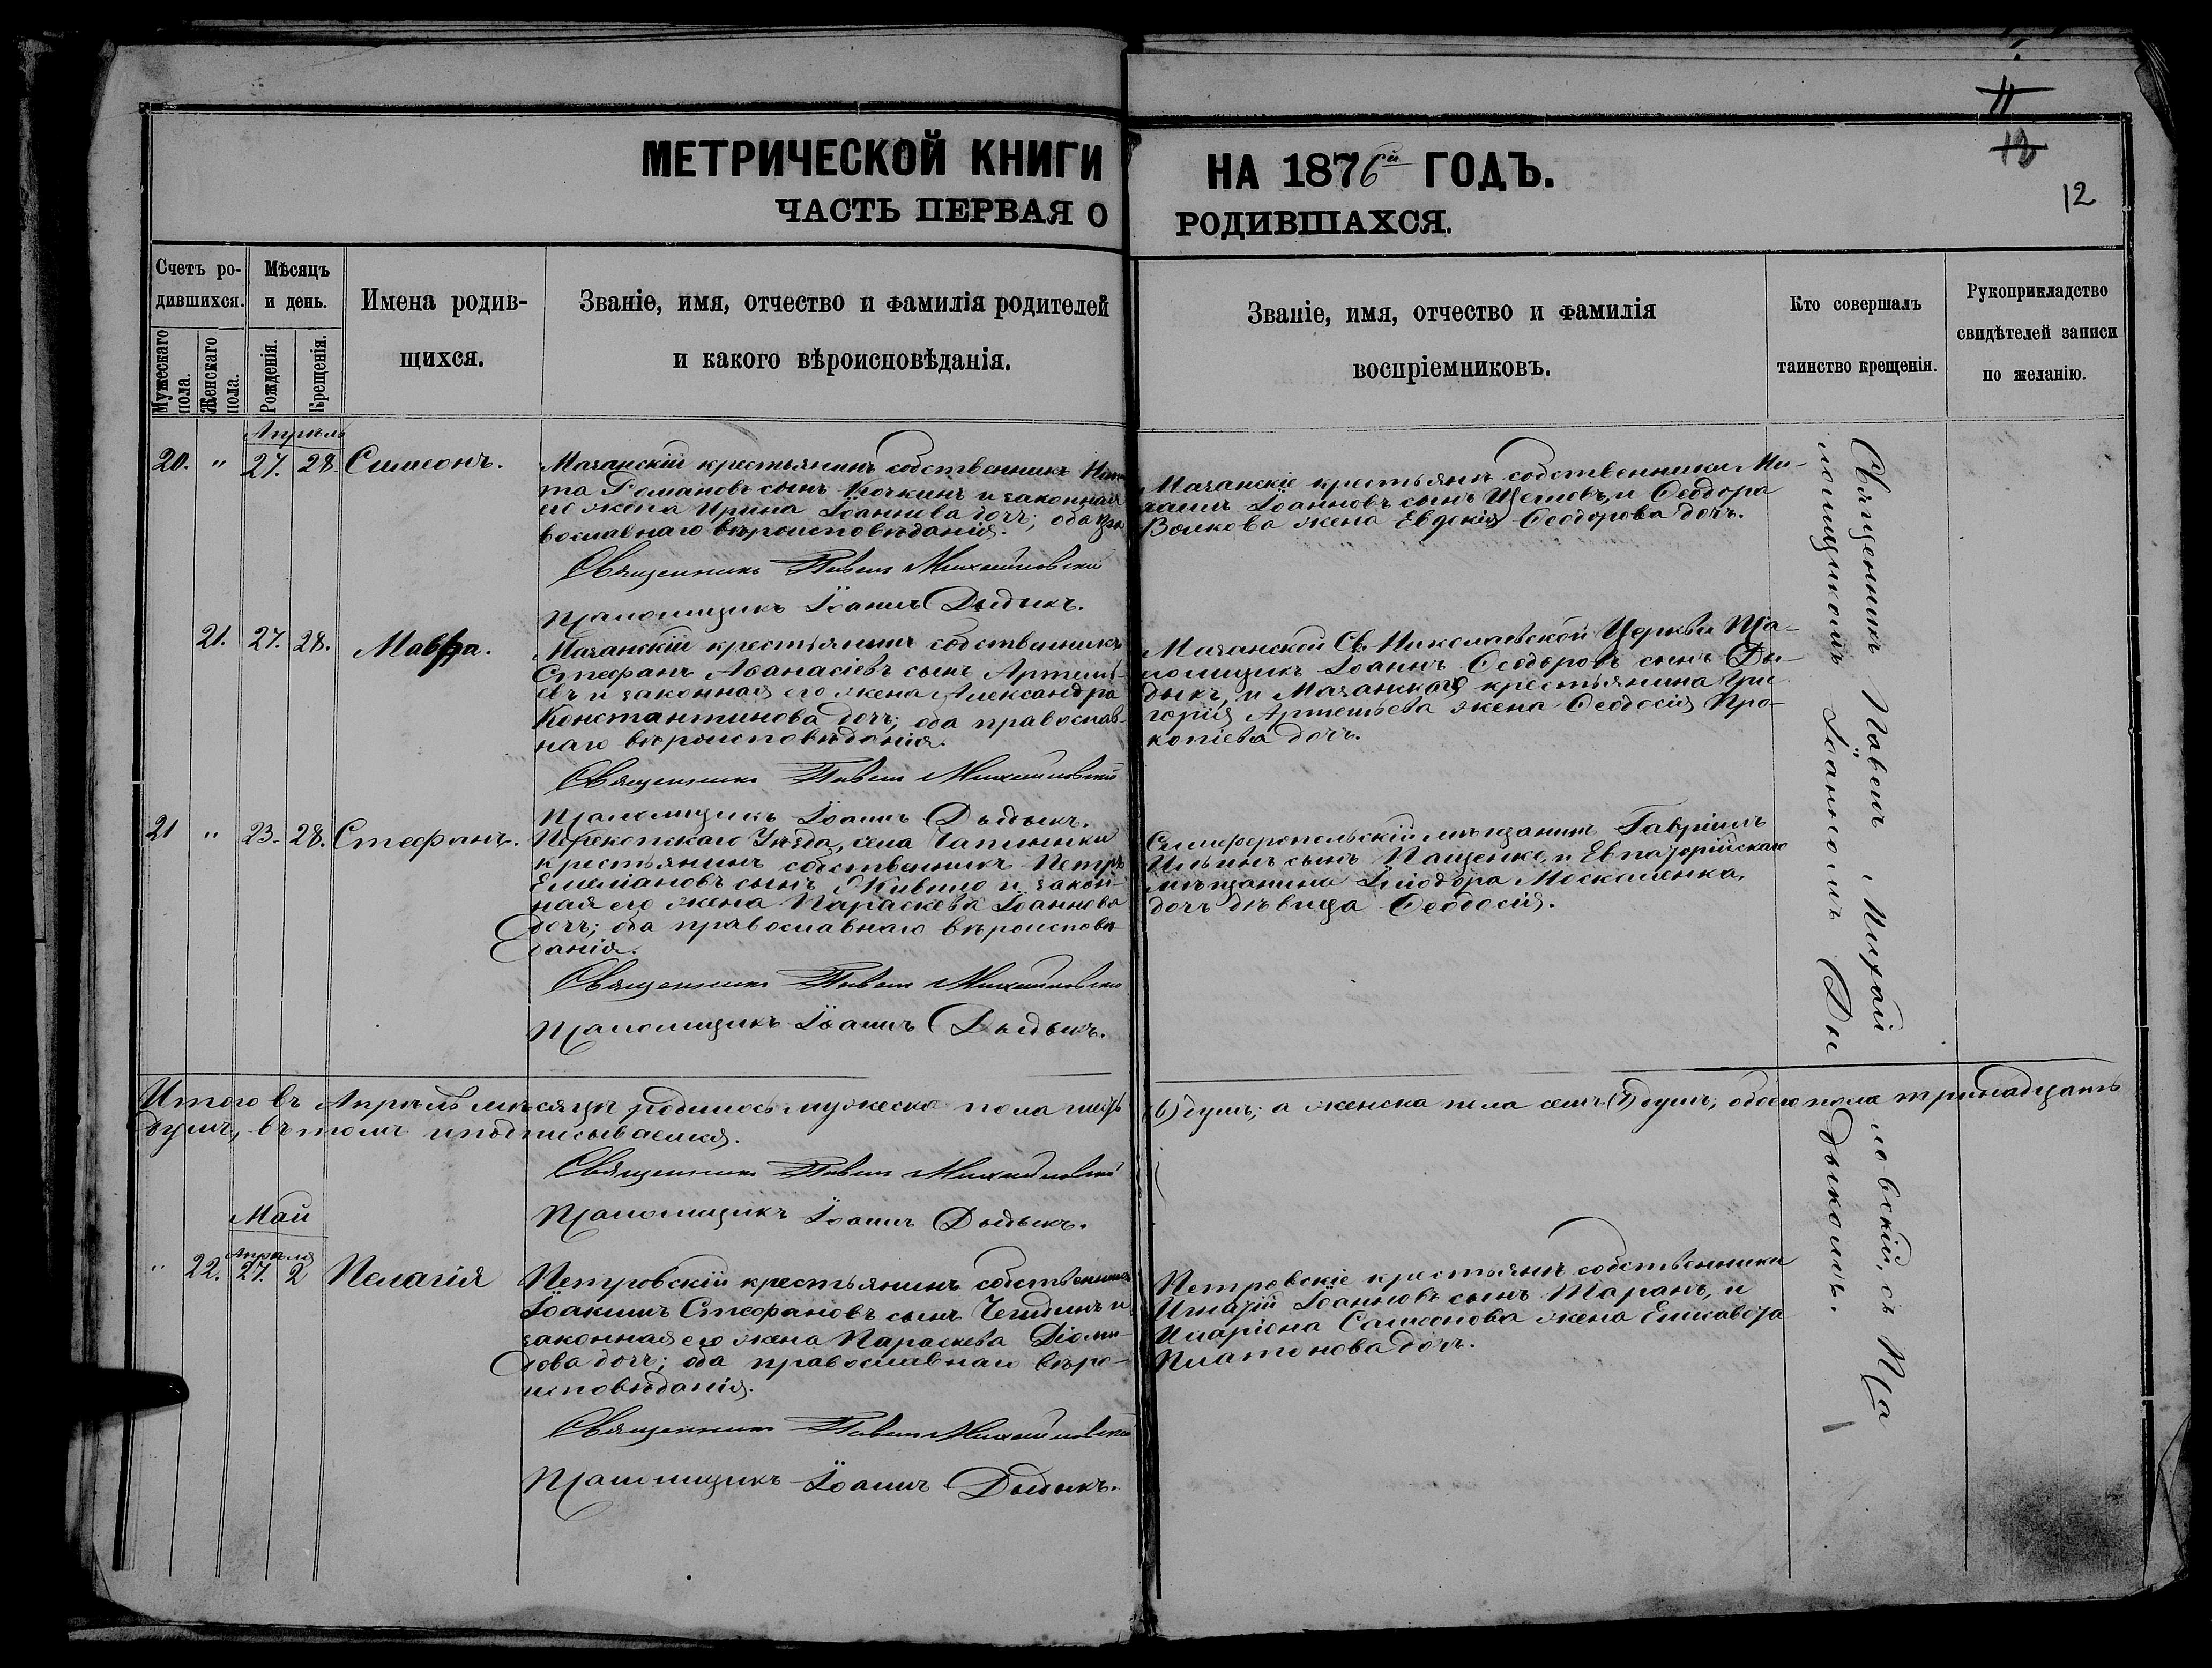 11
12
12
МЕТРИЧЕСКОЙ КНИГИ НА 1876й ГОДЪ.
ЧАСТЬ ПЕРВАЯ О РОДИВШАХСЯ.
Счетъ ро-
дившихся.
Мужескаго
пола.
Женскаго
пола.
Мѣсяцъ
и день.
Рожденія.
Крещенія.
Имена родив-
щихся.
Званіе, имя, отчество и фамилія родителей
и какого вѣроисповѣданія.
Званіе, имя, отчество и фамилія
воспріемниковъ.
Кто совершалъ
таинство крещенія.
Рукоприкладство
свидѣтелей записи
по желанію.
Апрѣль
20. " 27. 28. Симеонъ.
Мачанскій крестьянинъ собственникъ
та Романовъ сынъ Кочкинъ и законная
его жена Ирина Іоаннова дочь; оба пра
вославнаго вѣроисповѣданія.
Священникъ Павелъ Михайловскій
Псаломщикъ Іоаннъ Дыдыкъ.
Мачанскіе крестьяне собственники Ми-
хаилъ Іоанновъ сынъ Щегловъ, и Ѳеодора
Волкова жена Евдокія Ѳеодорова дочь.
21. 27. 28. Мавра.
Мачанскій крестьянинъ собственникъ
Стефанъ Аѳанасіевъ сынъ Артемь-
евъ и законная его жена Александра
Константинова дочь; оба православ-
наго вѣроисповѣданія.
Священникъ Павелъ Михайловскій
Псаломщикъ Іоаннъ Дыдыкъ.
Мачанской Св. Николаевской Церкви Пса-
ломщикъ Іоаннъ Ѳеодоровъ сынъ Ды-
дыкъ, и Мачанскаго крестьянина Гри
горія Артемьева жена Ѳеодосія Про-
копіева дочь.
21 " 23. 28. Стефанъ.
Перекопскаго Уѣзда, села Чаплинки
крестьянинъ собственникъ Петръ
Емеліановъ сынъ и закон-
ная его жена Параскева Іоаннова
дочь; оба православнаго вѣроисповѣ-
данія.
Священникъ Павелъ Михайловскій
Псаломщикъ Іоаннъ Дыдыкъ.
Симферопольскій мѣщанинъ Гавріилъ
Ильинъ сынъ Пащенко, и Евпаторійскаго
мѣщанина Москаленка,
дочь дѣвица Ѳеодосія.
Итого въ Апрѣлѣ мѣсяцѣ родилось мужеска пола шесть (6) душъ; а женска пола семь (7) душъ, обоего пола тринадцать
душъ, въ томъ и подписываемся.
Священникъ Павелъ Михайловскій
Псаломщикъ Іоаннъ Дыдыкъ.
Май
Апрѣля
" 22. 27. 2 Пелагія
Петровскій крестьянинъ собственникъ
Іоакимъ Стефановъ сынъ и
законная его жена Параскева Діоми-
дова дочь; оба православнаго вѣро-
исповѣданія.
Священникъ Павелъ Михайловскій
Псаломщикъ Іоаннъ Дыдыкъ.
Петровскіе крестьяне собственники
Игнатій Іоанновъ сынъ Таранъ, и
Иларіона Самсонова жена Елисавета
Платонова дочь.
Священникъ Павелъ Михайловскій, съ Пса
ломщикомъ Іоанномъ Дыдыкомъ.